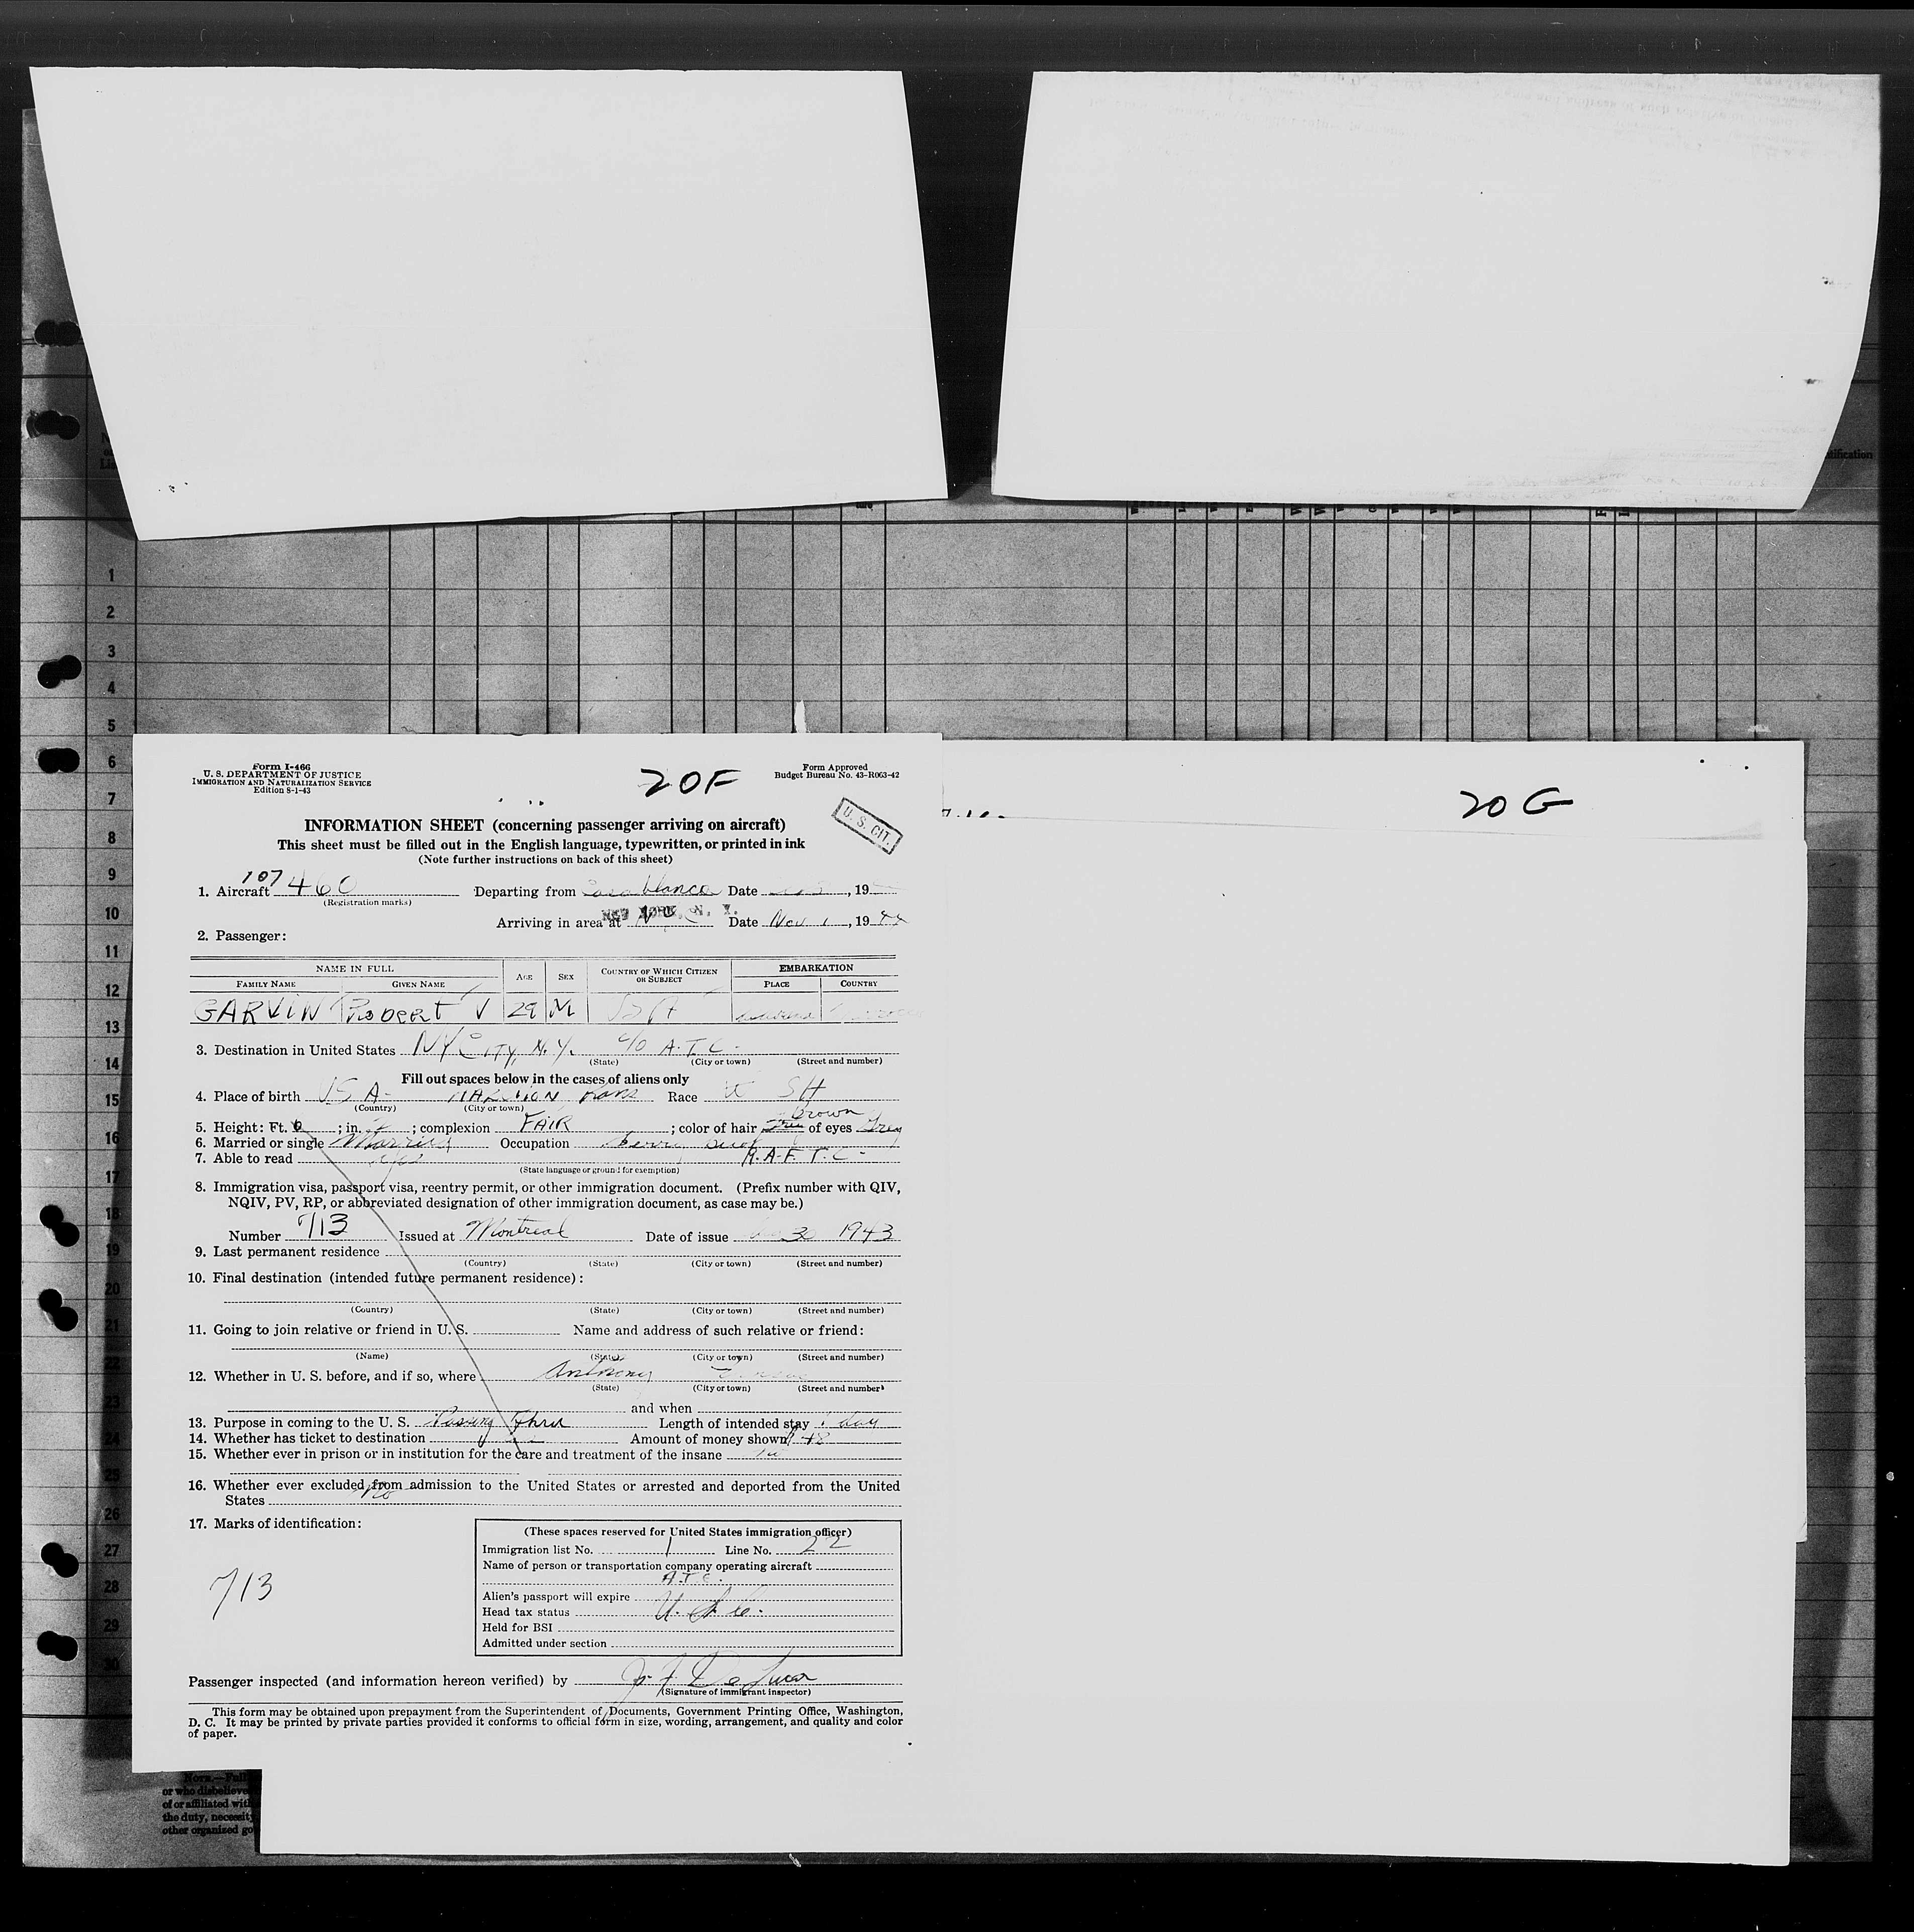 Form I-466
U. S. DEPARTMENT OF JUSTICE
IMMIGRATION AND NATURALIZATION SERVICE
Edition 8-1-43
20F
Form Approved
Budget Bureau No. 43-R063-42
20 G
U. S. CIT.
INFORMATION SHEET (concerning passenger arriving on aircraft)
This sheet must be filled out in the English language, typewritten, or printed in ink
(Note further instructions on back of this sheet)
1. Aircraft 107460 Departing from Casablanca Date , 19
(Registration marks)
Arriving in area at NEW YORK, N. Y. Date Nov 1, 1944
2. Passenger:
NAME IN FULL AGE SEX COUNTRY OF WHICH CITIZEN OR SUBJECT EMBARKATION
FAMILY NAME GIVEN NAME PLACE COUNTRY
GARVIN Robert V 29 M USA
3. Destination in United States NY City, N.Y. c/o A.T.C.
(State) (City or town) (Street and number)
Fill out spaces below in the cases of aliens only
4. Place of birth USA Kans Race
(Country) (City or town)
5. Height: Ft. 6; in. ; complexion FAIR; color of hair brown of eyes Grey
6. Married or single Married Occupation
7. Able to read yes R.A.F.T.C.
(State language or ground for exemption)
8. Immigration visa, passport visa, reentry permit, or other immigration document. (Prefix number with QIV,
NQIV, PV, RP, or abbreviated designation of other immigration document, as case may be.)
Number 713 Issued at Montreal Date of issue 30 1943
9. Last permanent residence
(Country) (State) (City or town) (Street and number)
10. Final destination (intended future permanent residence):
(Country) (State) (City or town) (Street and number)
11. Going to join relative or friend in U. S. Name and address of such relative or friend:
(Name) (State) (City or town) (Street and number)
12. Whether in U. S. before, and if so, where Anthony
(State) (City or town) (Street and number)
and when
13. Purpose in coming to the U. S. Passing Thru Length of intended stay 1 day
14. Whether has ticket to destination Amount of money shown 48
15. Whether ever in prison or in institution for the care and treatment of the insane no
16. Whether ever excluded from admission to the United States or arrested and deported from the United
States no
17. Marks of identification:
713
(These spaces reserved for United States immigration officer)
Immigration list No. 1 Line No. 22
Name of person or transportation company operating aircraft
A.T.C.
Alien's passport will expire
Head tax status U.S.C.
Held for BSI
Admitted under section
Passenger inspected (and information hereon verified) by
(Signature of immigrant inspector)
This form may be obtained upon prepayment from the Superintendent of Documents, Government Printing Office, Washington,
D. C. It may be printed by private parties provided it conforms to official form in size, wording, arrangement, and quality and color
of paper.
1
2
3
4
5
6
7
8
9
10
11
12
13
14
15
16
17
18
19
20
21
22
23
24
25
26
27
28
29
30
or who disbelieve
of or affiliated with
the duty, necessity,
other organized go